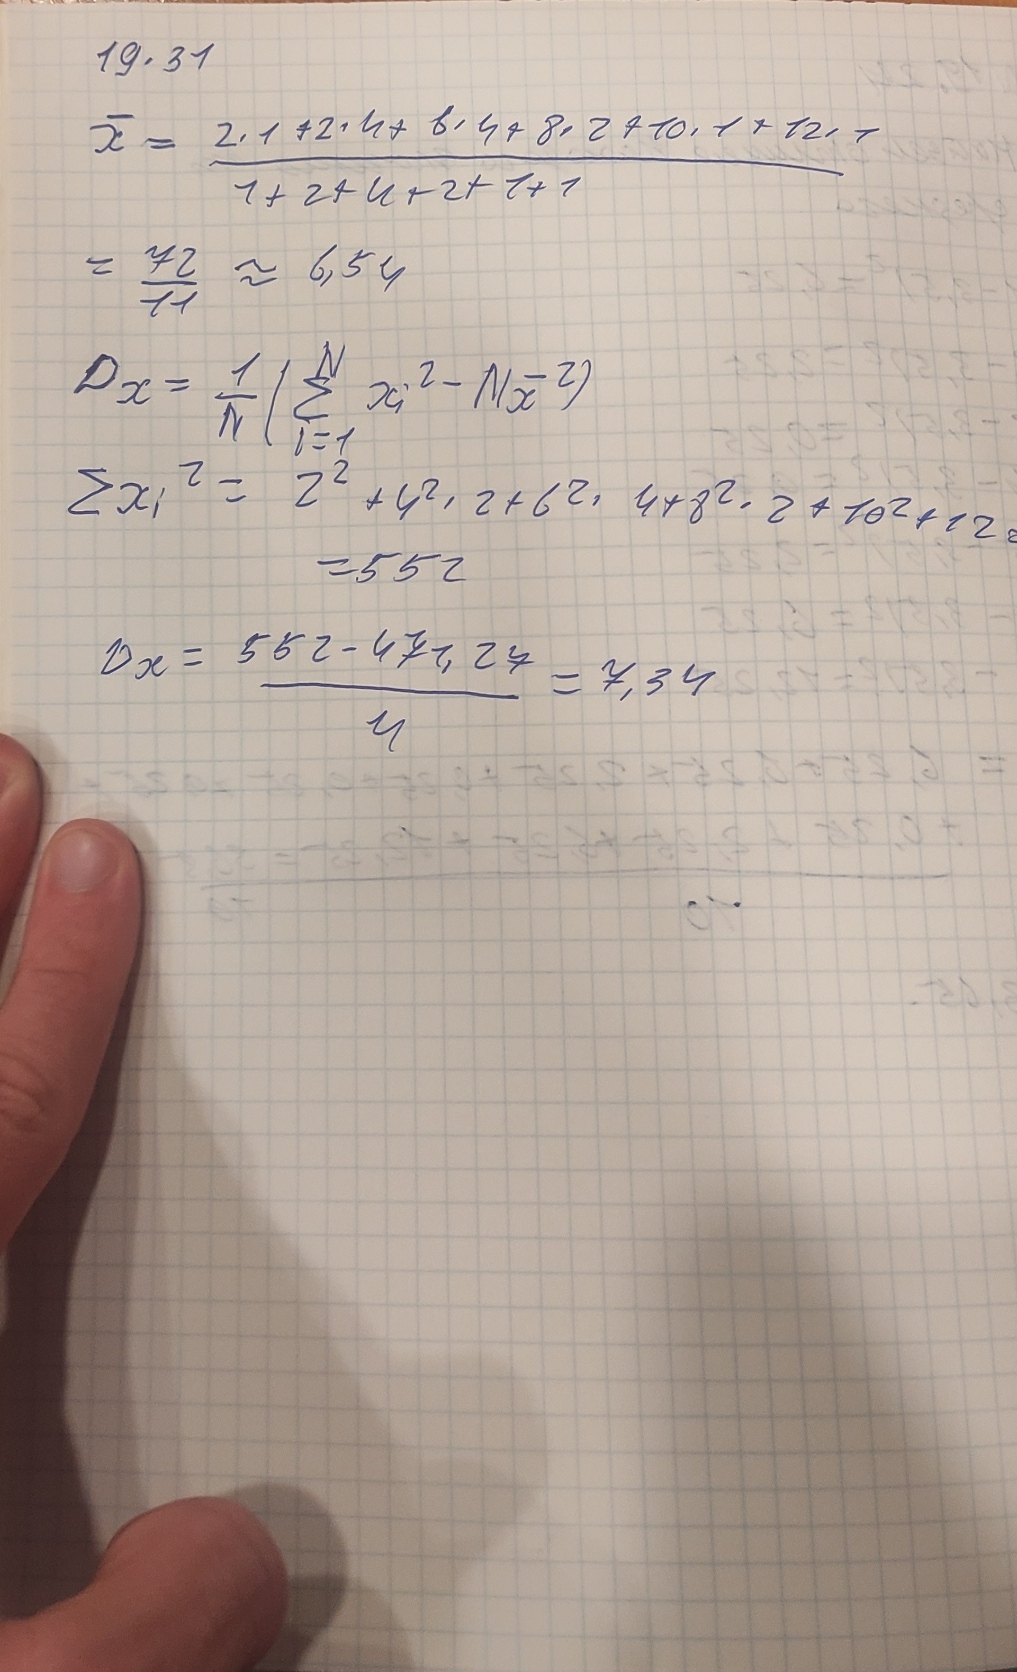 19.31
x̄ = 2·1+2·4+6·4+8·2+10·1+12·1
1+2+4+2+1+1
= 72/11 ≈ 6,54
Dx = 1/N (∑ᵢ₌₁ᴺ xᵢ² - Nx̄²)
∑xᵢ² = 2² + 4²·2+6²·4+8²·2+10²+12²=
=552
Dx = 552-471,27
4
= 7,34